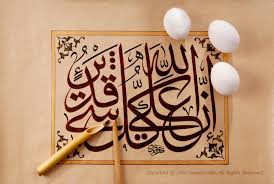 إنَّ الله على كل شيء قدير
Copyright © 2007 All Rights Reserved.